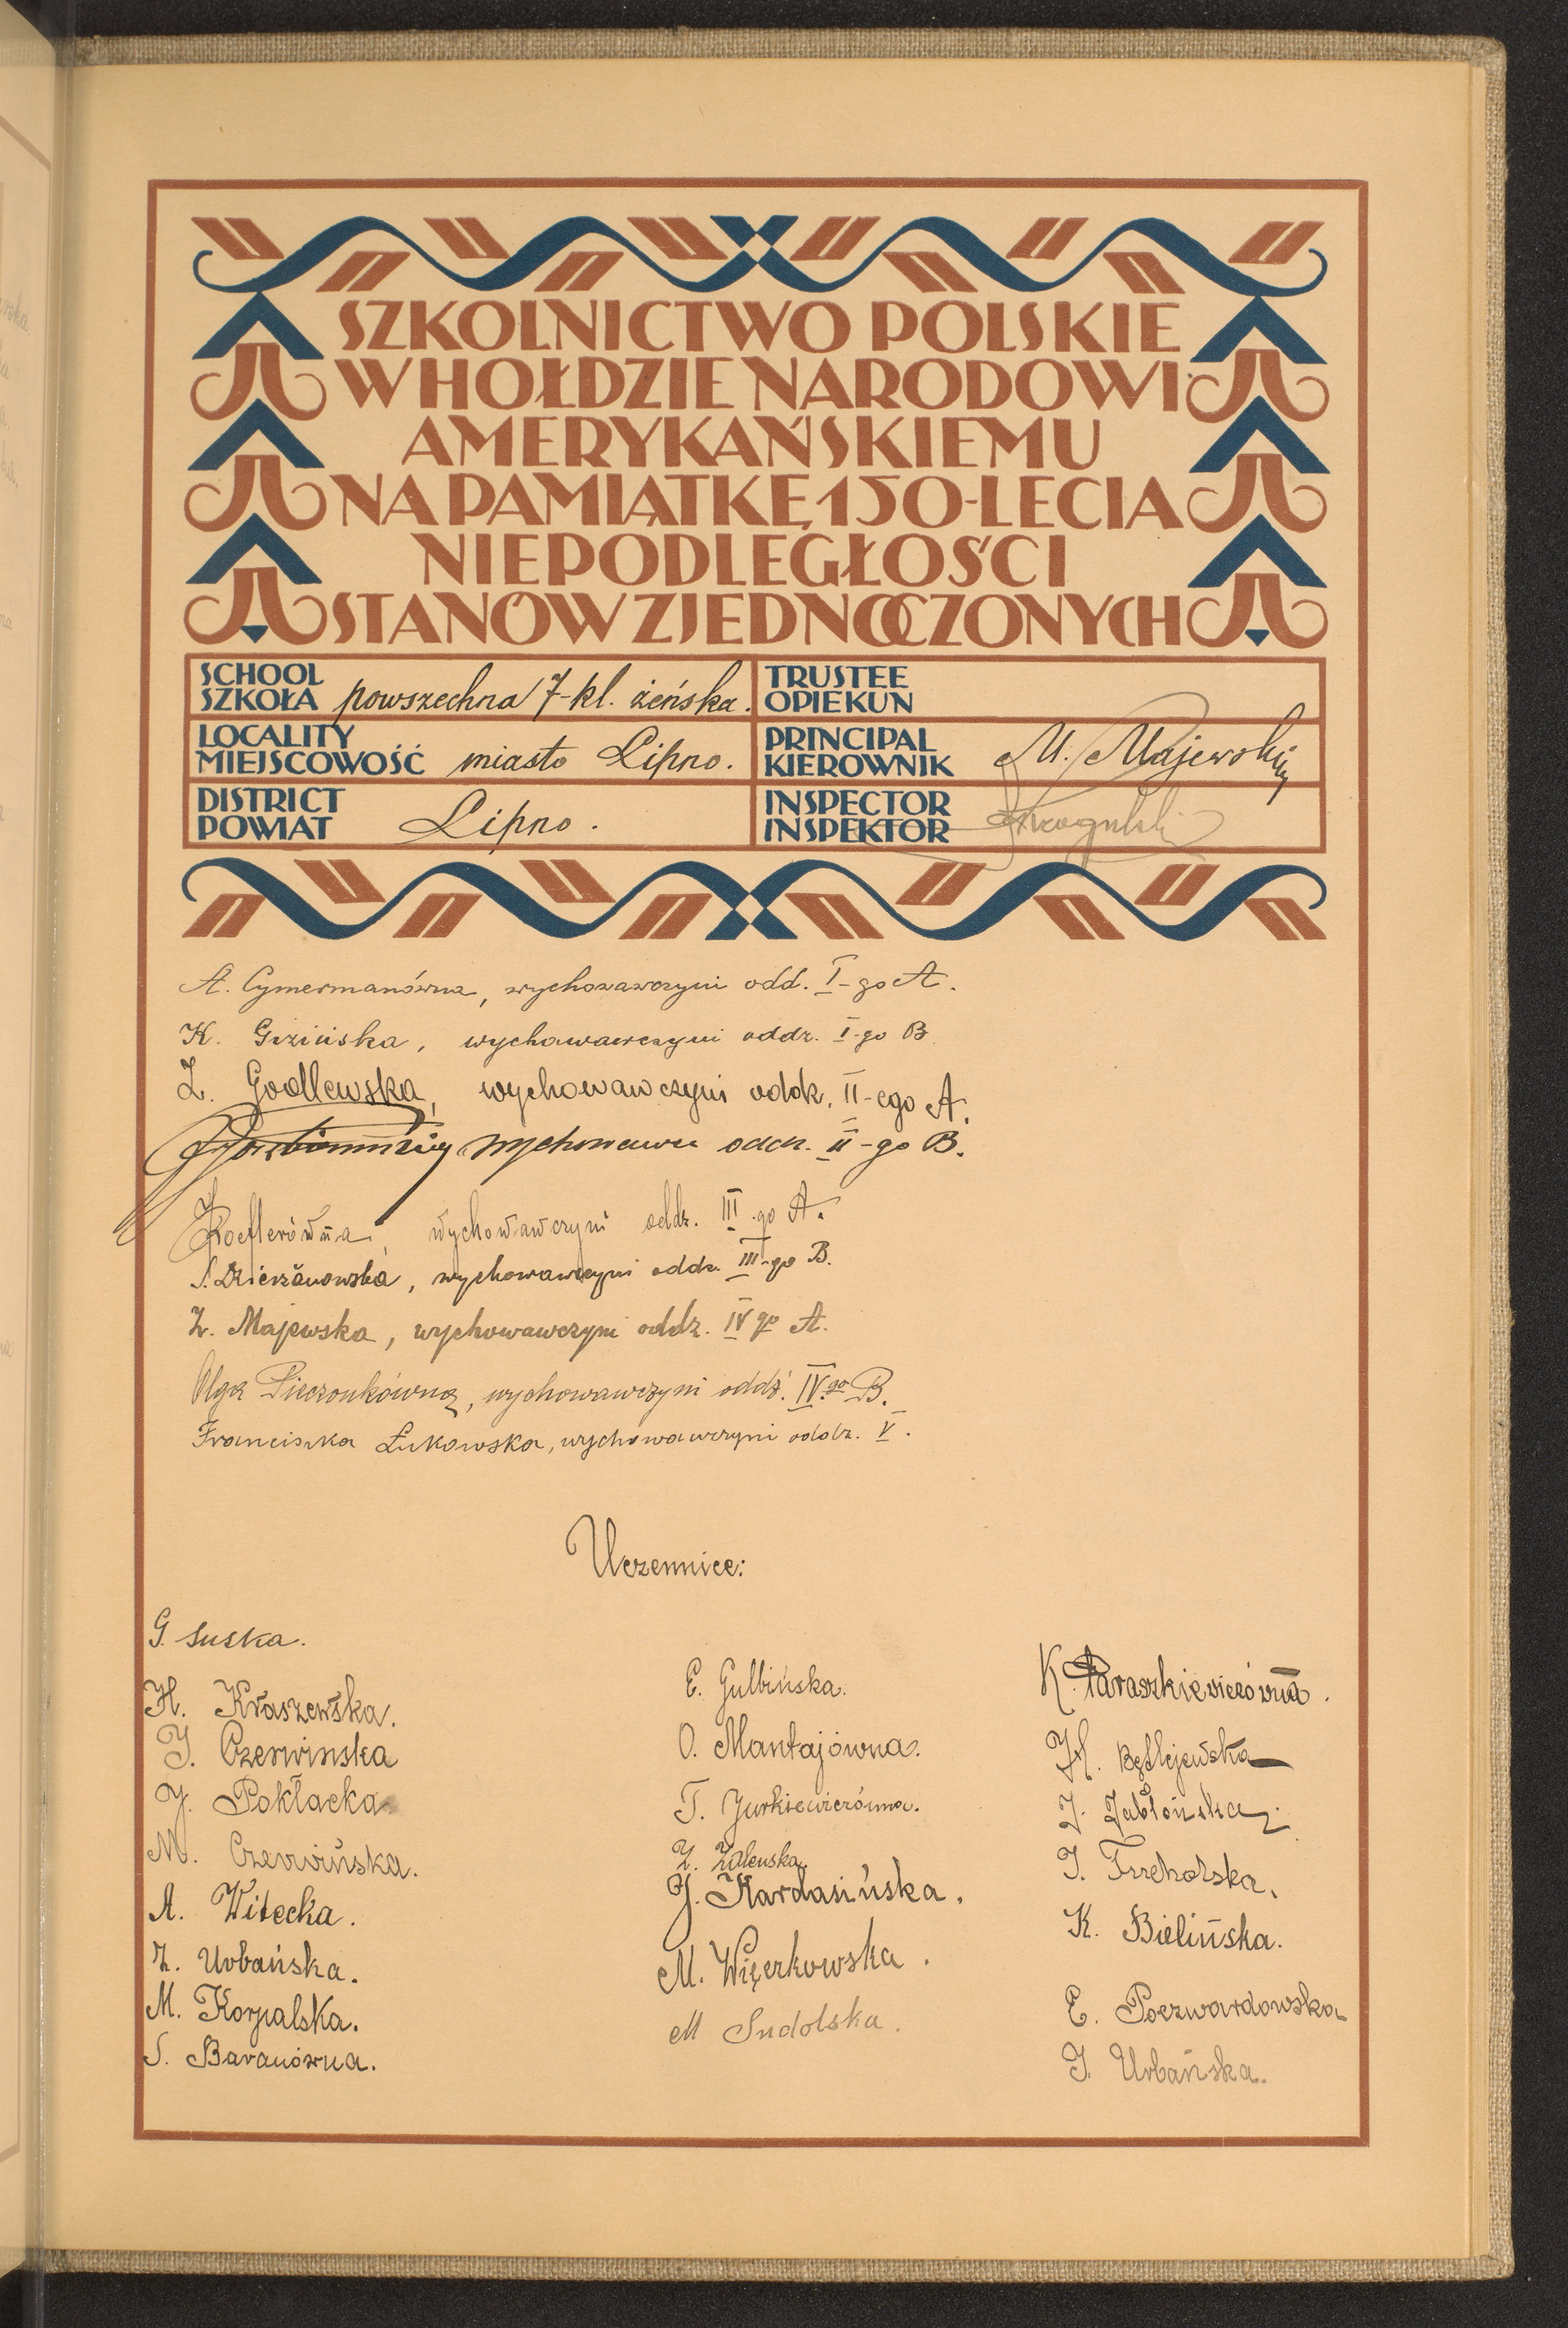 SZKOLNICTWO POLSKIE
W HOŁDZIE NARODOWI
AMERYKAŃSKIEMU
NA PAMIĄTKĘ 150-LECIA
NIEPODLEGŁOŚCI
STANÓW ZJEDNOCZONYCH
SCHOOL
SZKOŁA powszechna 7-kl. żeńska.
TRUSTEE
OPIEKUN
LOCALITY
MIEJSCOWOŚĆ miasto Lipno.
PRINCIPAL
KIEROWNIK M. Majewski
DISTRICT
POWIAT Lipno.
INSPECTOR
INSPEKTOR
A. Cymermanówna, wychowawczyni odd. I-go A.
K. Gizińska, wychowawczyni oddz. I-go B
Z. Godlewska, wychowawczyni oddz. II-ego A.
wychowawca oddz. II-go B.
wychowawczyni oddz. III-go A.
S. Dzierżanowska, wychowawczyni oddz. III-go B.
Z. Majewska, wychowawczyni oddz. IV go A.
Olga Pieczonkówna, wychowawczyni oddz. IV.go B.
Franciszka Łukowska, wychowawczyni oddz. V.
Uczennice:
G. Suska.
H. Kraszewska.
J. Czerwinska
J. Pokłacka
M. Czerwińska.
A. Witecka.
Z. Urbańska.
M. Korpalska.
S. Baranówna.
E. Gulbińska.
O. Mantajówna.
T. Jurkiewiczówna.
Z. Zalewska
J. Kardasińska.
M. Więckowska.
M Sudolska.
K. Paraszkiewiczówna.
H. Będlejewska
J. Jabłońska
J. Trzcholska.
K. Bielińska.
E. Poczwardowska
J. Urbańska.